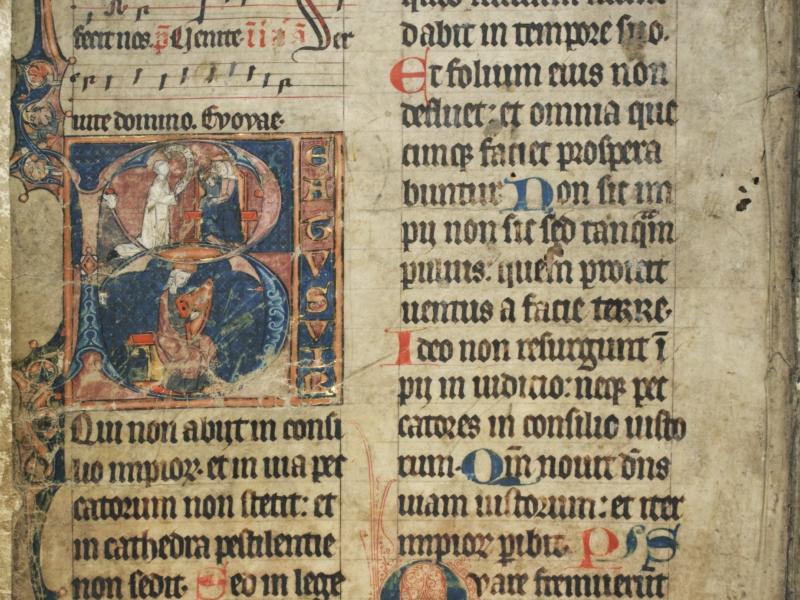 fecit nos. Uenite Ser
uite domino. Evovae.
B
EA
T
VS
VI
R
Qui non abijt in consi
lio impioꝝ. et in uia pec
catorum non stetit: et
in cathedra pestilentie
non sedit. Sed in lege
dabit in tempore suo.
Et folium eius non
defluet: et omnia que
cunqꝫ faciet prospera
buntur. Non sic im
pij non sic sed tanqͣm
puluis. quem proicit
uentus a facie terre.
Ideo non resurgunt ī
pij in iudicio: neqꝫ pec
catores in consilio iusto
rum. Qm̄ nouit dn̄s
uiam iustorum: et iter
impioꝝ ꝑibit. PsS
Quare fremuerūt